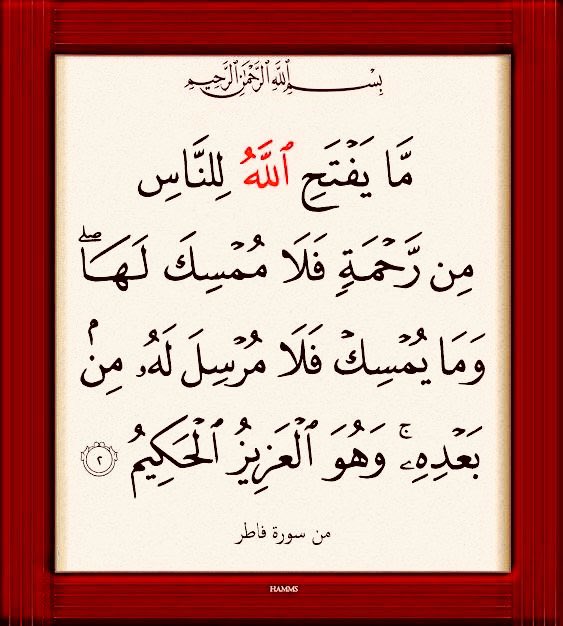 بِسْمِ ٱللَّهِ ٱلرَّحْمَٰنِ ٱلرَّحِيمِ
مَّا يَفْتَحِ ٱللَّهُ لِلنَّاسِ
مِن رَّحْمَةٍ فَلَا مُمْسِكَ لَهَا ۖ
وَمَا يُمْسِكْ فَلَا مُرْسِلَ لَهُۥ مِنۢ
بَعْدِهِۦ ۚ وَهُوَ ٱلْعَزِيزُ ٱلْحَكِيمُ ٢
من سورة فاطر
HAMMS